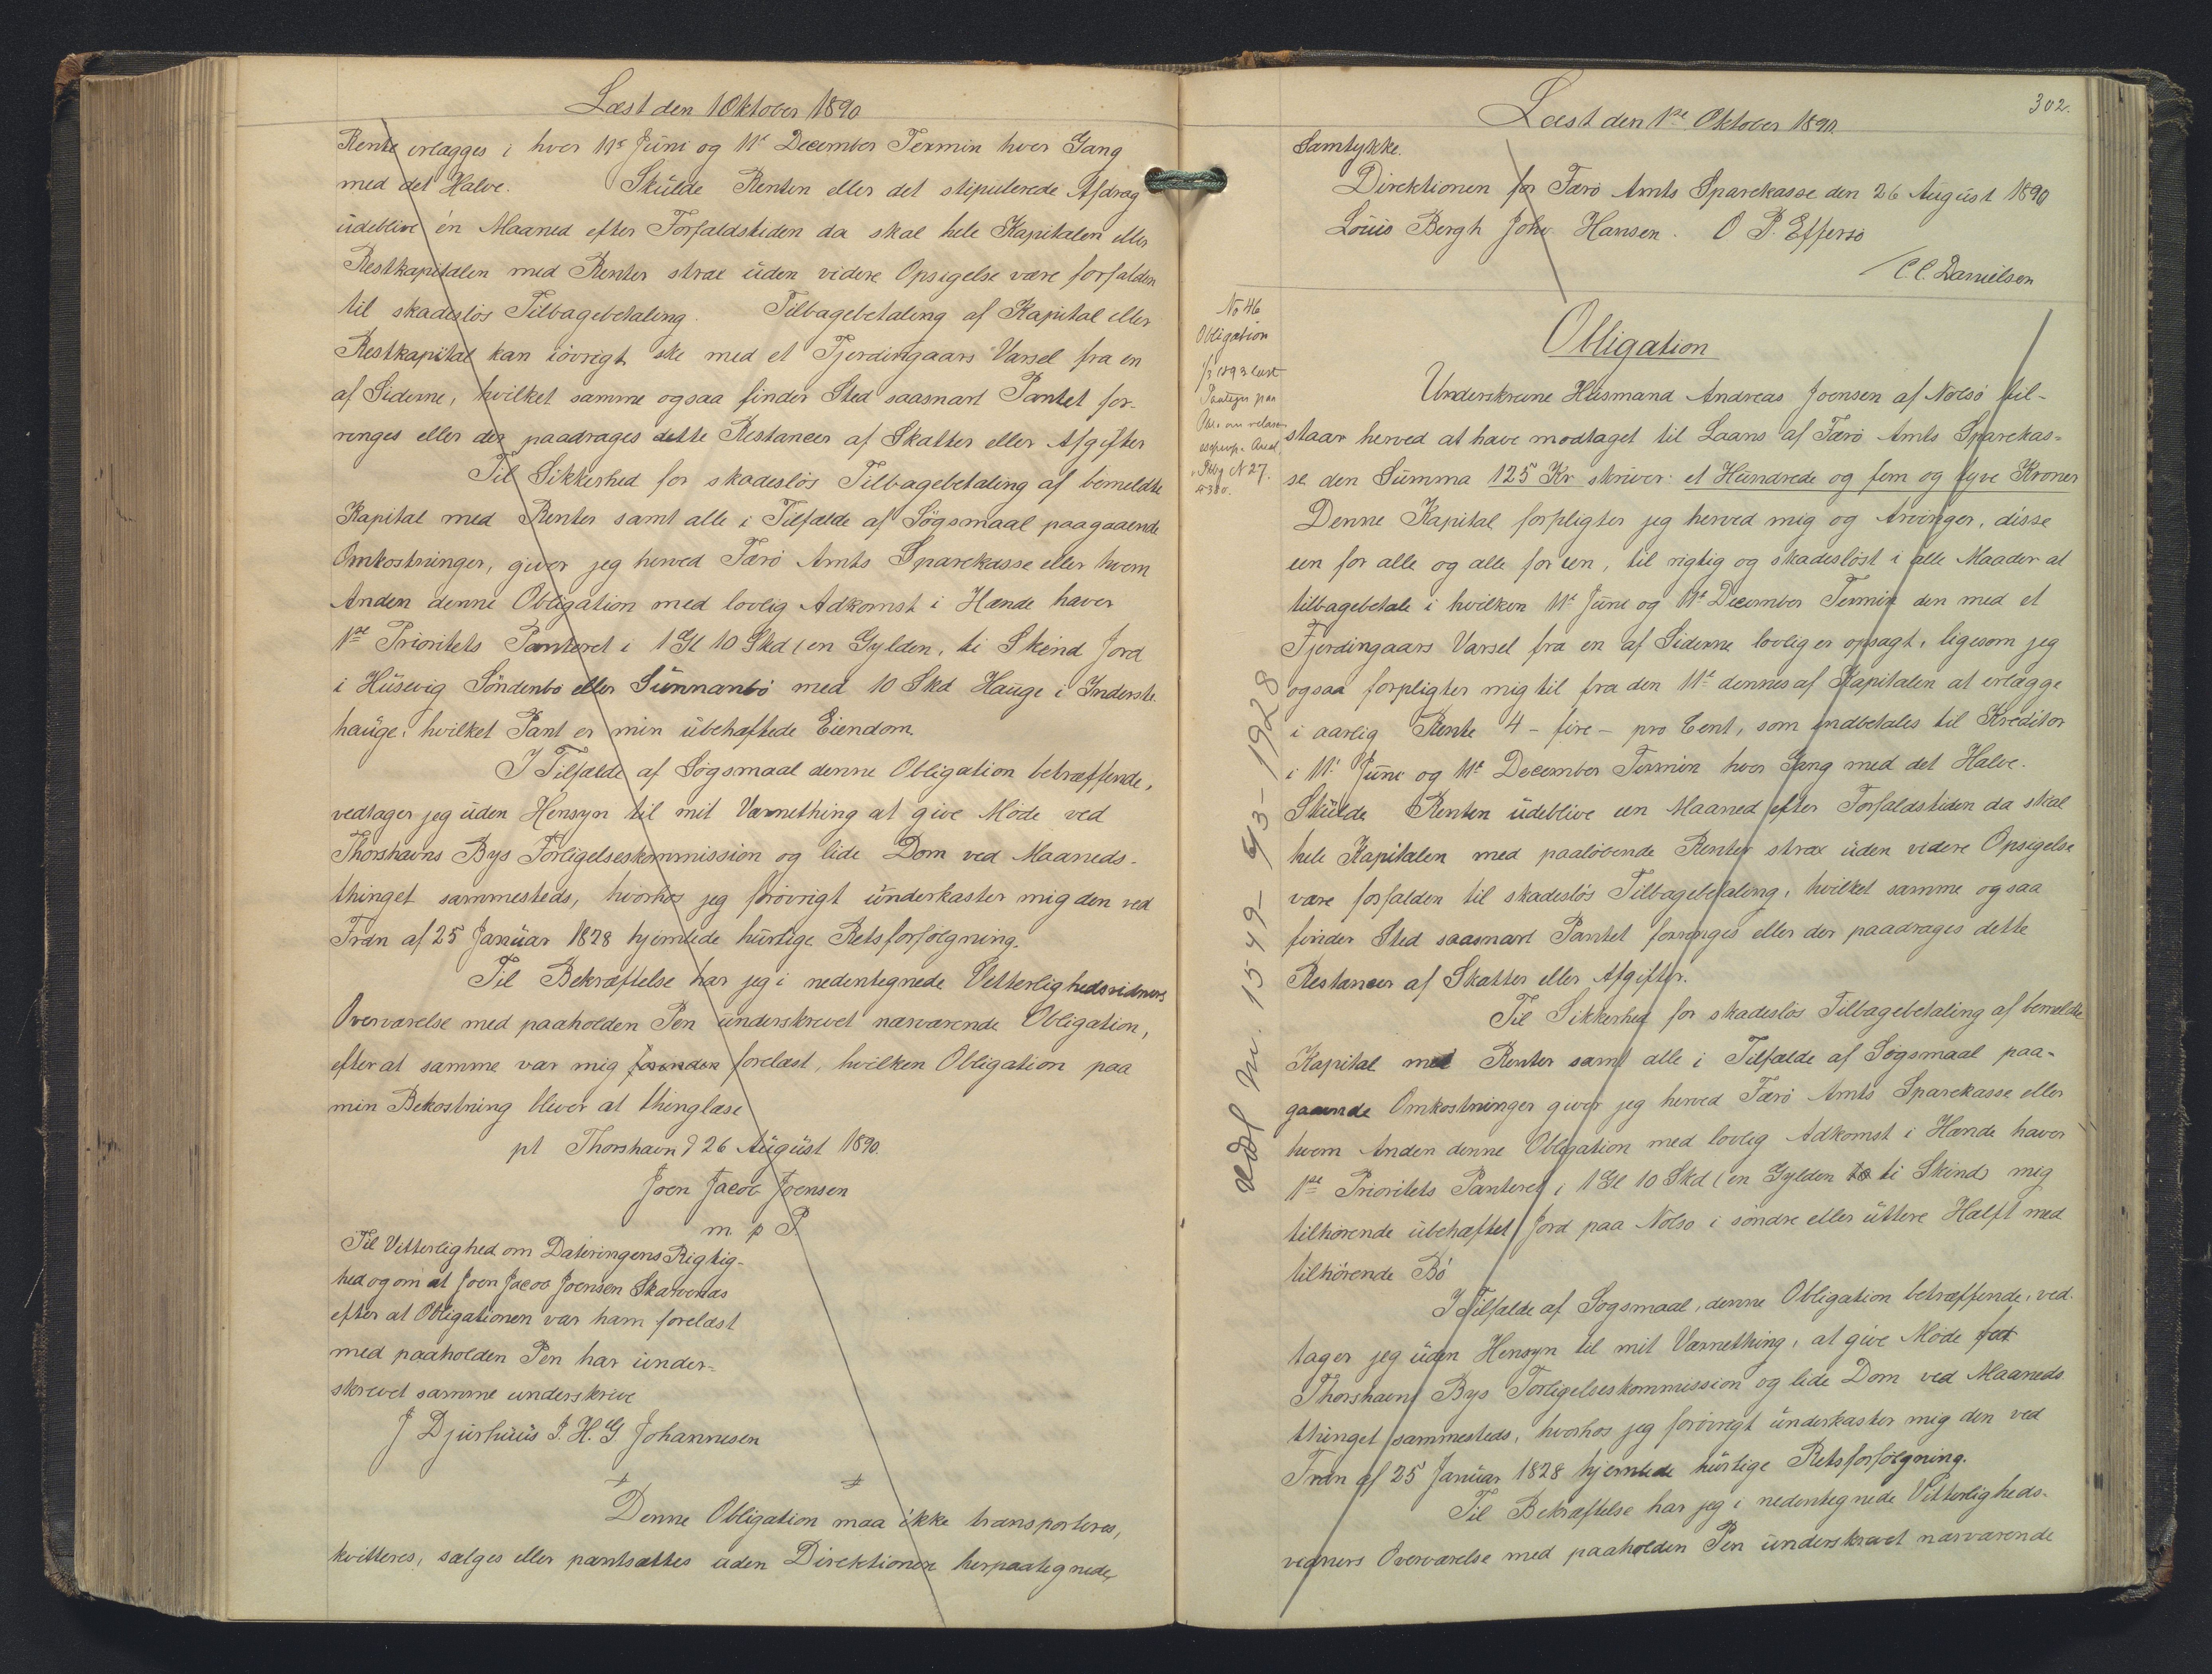 Læst den 1 Oktober 1890
Rente erlægges i hver 11te Juni og 11te December Termin hver Gang
med det Halve. Skulde Renten eller det stipulerede Afdrag
udeblive én Maaned efter Forfaldstiden da skal hele Kapitalen eller
Restkapitalen med Renter strax uden videre Opsigelse være forfalden
til skadeslös Tilbagebetaling. Tilbagebetaling af Kapital eller
Restkapital kan iövrigt ske med et Fjerdingaars Varsel fra en
af Siderne, hvilket samme ogsaa finder Sted saasnart Pantet for-
ringes eller der paadrages dette Restancer af Skatter eller Afgifter
Til Sikkerhed for skadeslös Tilbagebetaling af bemeldte
Kapital med Renter samt alle i Tilfælde af Sögsmaal paagaaende
Omkostninger, giver jeg herved Færö Amts Sparekasse eller hvem
Anden denne Obligation med lovlig Adkomst i Hænde haver
1ste Prioritets Panteret i 1 Gl 10 Skd (en Gylden, ti Skind Jord
i Husevig Söndenbö eller Sunnanbö med 10 Skd Hauge i Inderste
hauge, hvilket Pant er min ubehæftede Eiendom.
I Tilfælde af Sögsmaal denne Obligation betræffende,
vedtager jeg uden Hensyn til mit Værnething at give Möde ved
Thorshavns Bys Forligelseskommission og lide Dom ved Maaneds-
thinget sammesteds, hvorhos jeg forövrigt underkaster mig den ved
Frdn af 25 Januar 1828 hjemlede hurtige Retsforfölgning.
Til Bekræftelse har jeg i nedentegnede Vitterlighedsvidners
Overværelse med paaholden Pen underskrevet nærværende Obligation,
efter at samme var mig forelæst, hvilken Obligation paa
min Bekostning bliver at thinglæse
pt Thorshavn d 26 August 1890.
Joen Jacob Joensen
m. p P.
Til Vitterlighed om Dateringens Rigtig-
hed og om at Joen Jacob Joensen Skarvenæs
efter at Obligationen var ham forelæst
med paaholden Pen har under-
skrevet samme underskrive
J Djurhuus J. H. G Johannesen
Denne Obligation maa ikke transporteres,
kvitteres, sælges eller pantsættes uden Direktionens herpaategnede
302.
Læst den 1ste Oktober 1890.
Samtykke.
Direktionen for Færö Amts Sparekasse den 26 August 1890
Louis Bergh Johs Hansen. O P. Effersö
C. C. Danielsen
No 46
Obligation
1/3 1893 læst
Obligation
Underskrevne Husmand Andreas Joensen af Nolsö til-
staar herved at have modtaget til Laans af Færö Amts Sparekas-
se den Summa 125 Kr skriver: et Hundrede og fem og tyve Kroner
Denne Kapital forpligter jeg herved mig og Arvinger, disse
een for alle og alle for een, til rigtig og skadeslöst i alle Maader at
tilbagebetale i hvilken 11te Juni og 11te December Termin den med et
Fjerdingaars Varsel fra en af Siderne lovlig er opsagt, ligesom jeg
ogsaa forpligter mig til fra den 11te dennes af Kapitalen at erlægge
i aarlig Rente 4 - fire - pro Cent, som indbetales til Kreditor
i 11te Juni og 11te December Termin hver Gang med det Halve.
Skulde Renten udeblive een Maaned efter Forfaldstiden da skal
hele Kapitalen med paalöbende Renter strax uden videre Opsigelse
være forfalden til skadeslös Tilbagebetaling, hvilket samme ogsaa
finder Sted saasnart Pantet forringes eller der paadrages dette
Restancer af Skatter eller Afgifter.
Til Sikkerhed for skadeslös Tilbagebetaling af bemeldte
Kapital med Renter samt alle i Tilfælde af Sögsmaal paa-
gaaende Omkostninger giver jeg herved Færö Amts Sparekasse eller
hvem Anden denne Obligation med lovlig Adkomst i Hænde haver
1ste Prioritets Panteret i 1 Gl 10 Skd (en Gylden ti Skind) mig
tilhörende ubehæftet Jord paa Nolsö i söndre eller uttere Hælft med
tilhörende Bö
I Tilfælde af Sögsmaal, denne Obligation betræffende, ved-
tager jeg uden Hensyn til mit Værnething, at give Möde
Thorshavns Bys Forligelseskommission og lide Dom ved Maaneds
thinget sammesteds, hvorhos jeg forövrigt underkaster mig den ved
Frdn af 25 Januar 1828 hjemlede hurtige Retsforfölgning.
Til Bekræftelse har jeg i nedentegnede Vitterligheds-
vidners Overværelse med paaholden Pen underskrevet nærværende